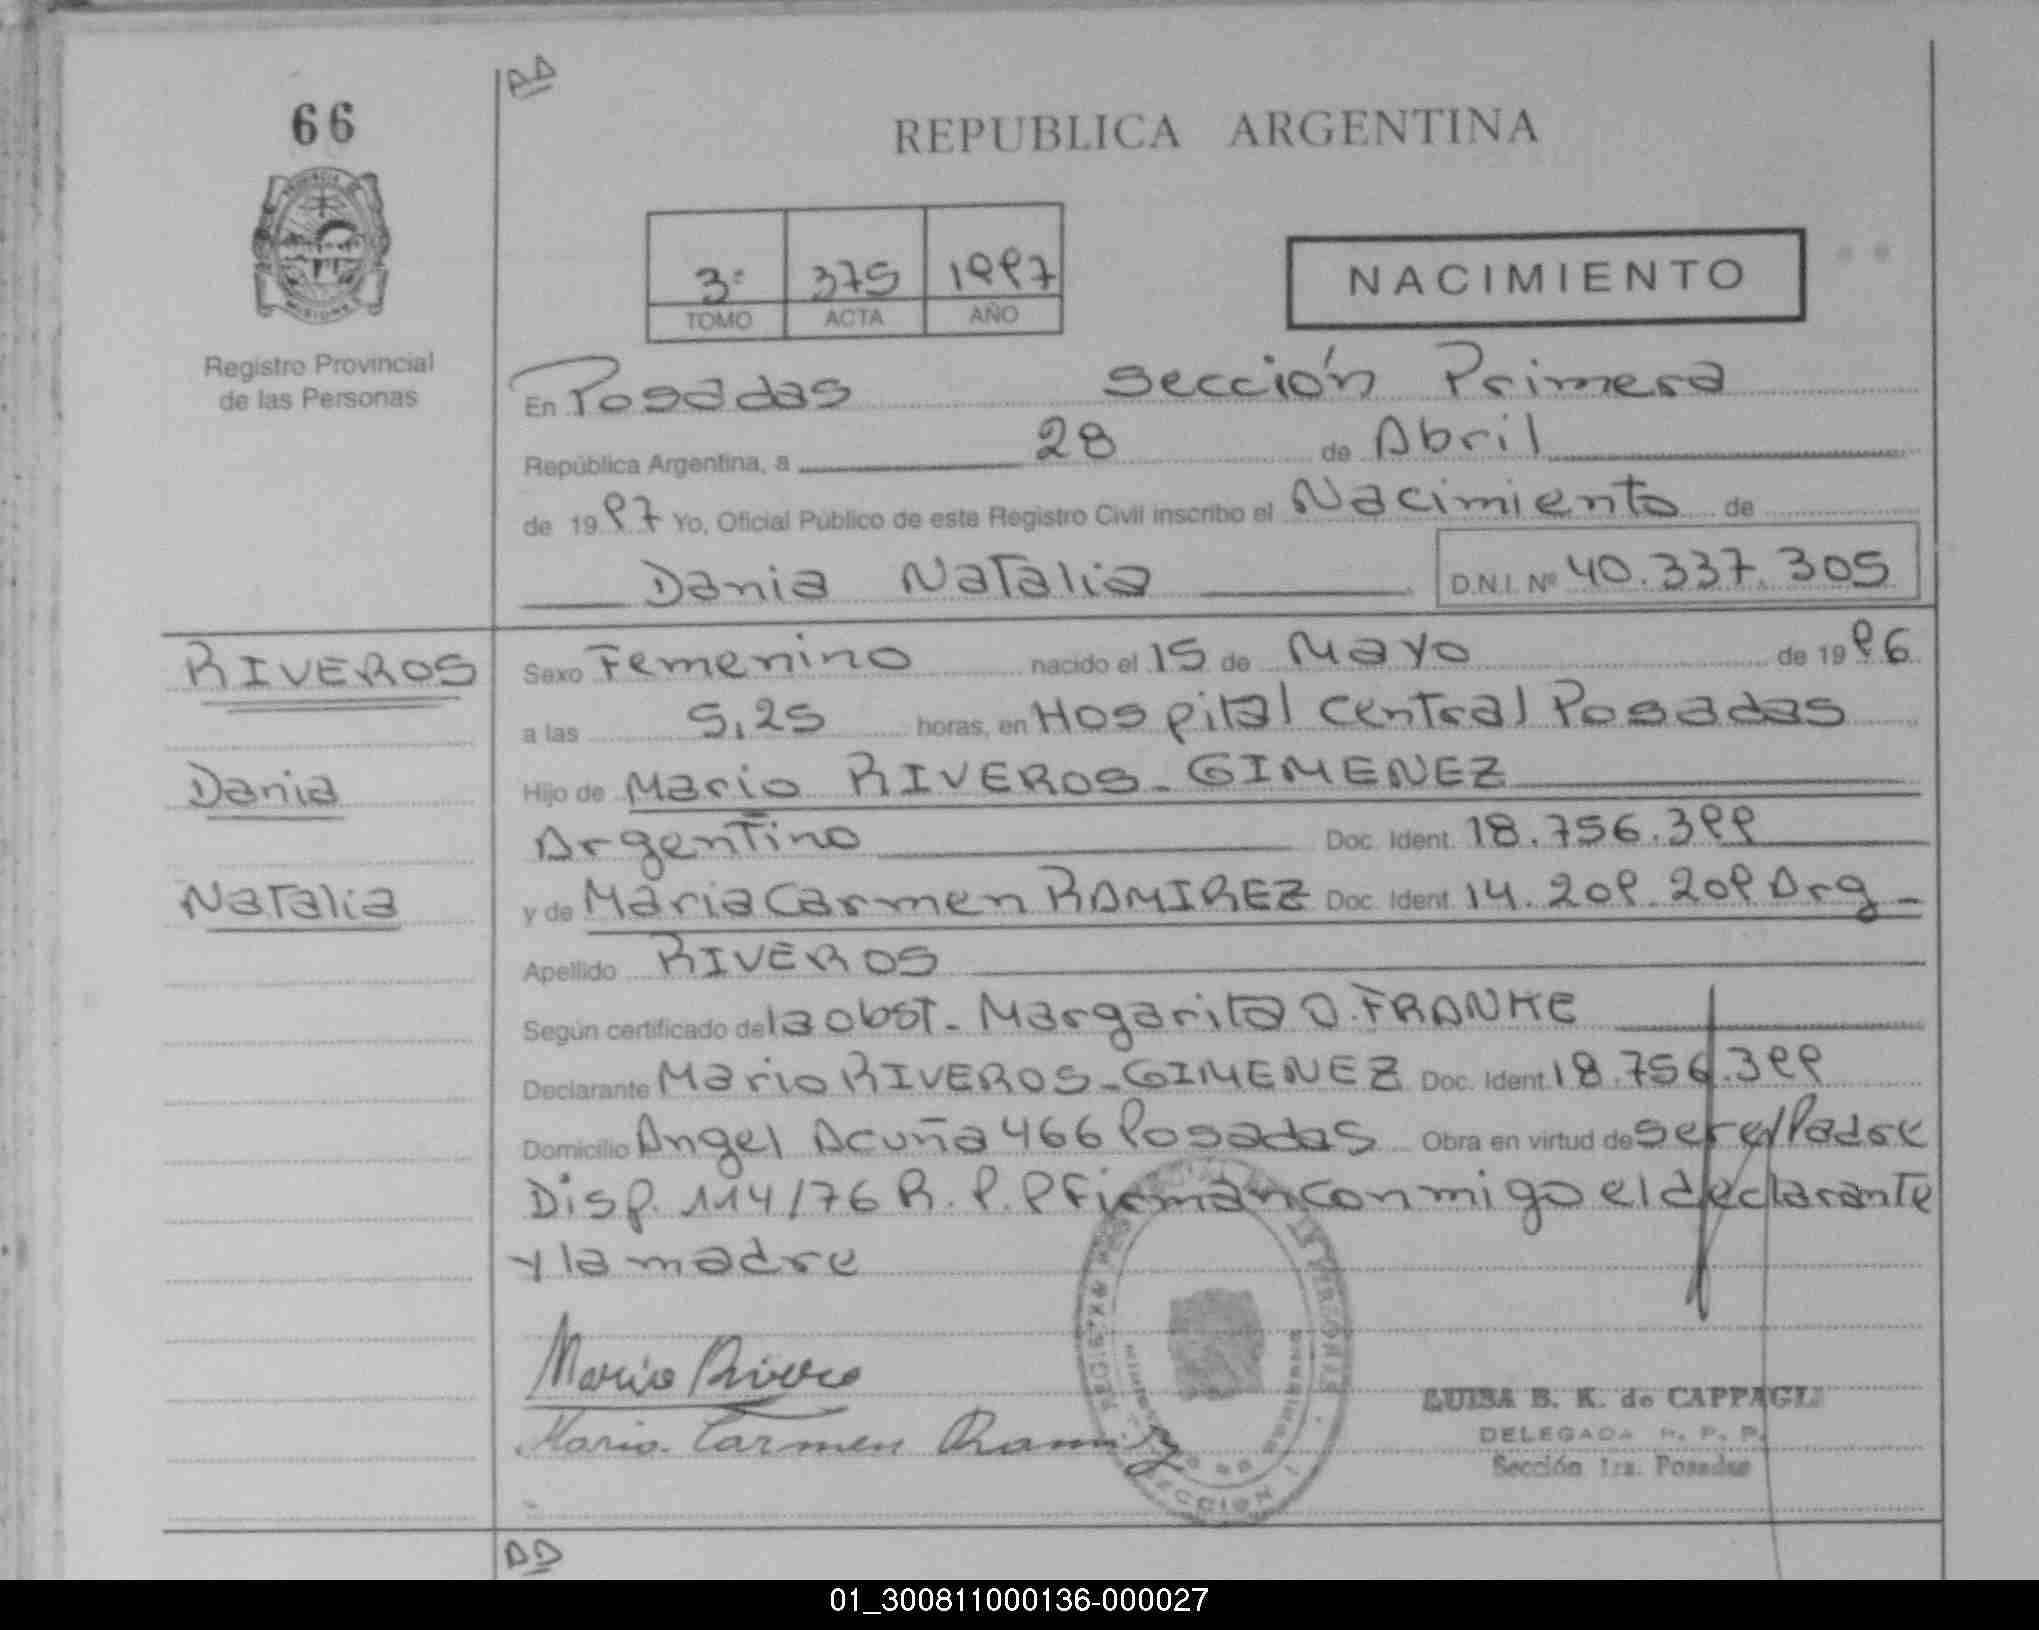 66
REPUBLICA ARGENTINA
3º 375 1997
TOMO ACTA AÑO
NACIMIENTO
Registro Provincial
de las Personas
En Posadas Sección Primera
República Argentina, a 28 de Abril
de 1997 Yo, Oficial Público de este Registro Civil inscribo el Nacimiento de
Dania Natalia D.N.I. Nº 40.337.305
RIVEROS
Dania
Natalia
Sexo Femenino nacido el 15 de Mayo de 1996
a las 5,25 horas, en Hospital Central Posadas
Hijo de Mario RIVEROS-GIMENEZ
Argentino Doc. Ident. 18.756.399
y de Maria Carmen RAMIREZ Doc. Ident. 14.209.209 Arg-
Apellido RIVEROS
Según certificado de la obst. Margarita O. FRANKE
Declarante Mario RIVEROS-GIMENEZ Doc. Ident. 18.756.399
Domicilio Angel Acuña 466 Posadas Obra en virtud de ser el Padre
Disp. 114/76 R.P.P firman conmigo el declarante
y la madre
Mario Rivero
Maria Carmen Ramirez
LUISA B. K. de CAPPAGLI
DELEGADA R. P. P.
Sección 1ra. Posadas
01_300811000136-000027